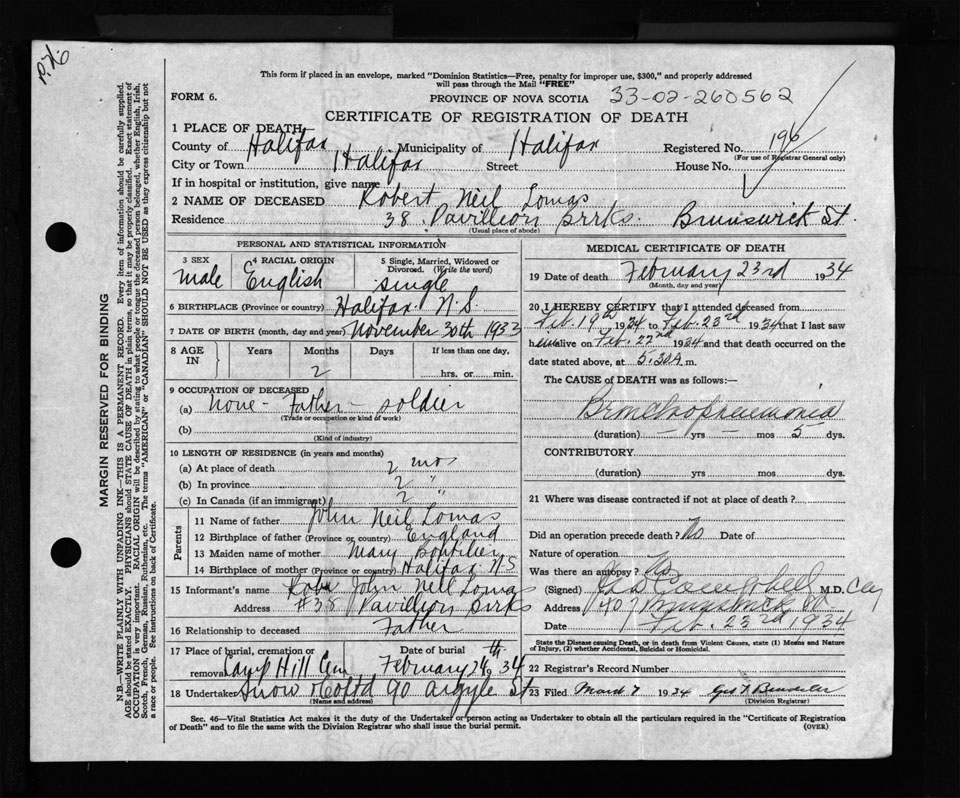 P.H.
This form if placed in an envelope, marked "Dominion Statistics—Free, penalty for improper use, $300," and properly addressed
will pass through the Mail "FREE"
FORM 6.
PROVINCE OF NOVA SCOTIA 33-02-260562
CERTIFICATE OF REGISTRATION OF DEATH
1 PLACE OF DEATH
County of Halifax Municipality of Halifax Registered No. 196
(For use of Registrar General only)
City or Town Halifax Street House No.
If in hospital or institution, give name
2 NAME OF DECEASED Robert Neil Lomas
Residence 38 Pavillion Brrks. Brunswick St.
(Usual place of abode)
PERSONAL AND STATISTICAL INFORMATION
3 SEX 4 RACIAL ORIGIN 5 Single, Married, Widowed or
Divorced. (Write the word)
male English single
6 BIRTHPLACE (Province or country) Halifax N.S.
7 DATE OF BIRTH (month, day and year) November 30th 1933
8 AGE IN Years Months Days If less than one day,
2 hrs. or min.
9 OCCUPATION OF DECEASED
(a) None - Father - soldier
(Trade or occupation or kind of work)
(b)
(Kind of industry)
10 LENGTH OF RESIDENCE (in years and months)
(a) At place of death 2 mos
(b) In province 2 "
(c) In Canada (if an immigrant) 2 "
Parents
11 Name of father John Neil Lomas
12 Birthplace of father (Province or country) England
13 Maiden name of mother Mary Boutilier
14 Birthplace of mother (Province or country) Halifax N.S
15 Informant's name John Neil Lomas
Address #38 Pavillion Brrks
16 Relationship to deceased Father
17 Place of burial, cremation or Date of burial
removal Camp Hill Cem February 24th 34
18 Undertaker Snow & Co Ltd 90 Argyle St
(Name and address)
MEDICAL CERTIFICATE OF DEATH
19 Date of death February 23rd 1934
(Month, day and year)
20 I HEREBY CERTIFY that I attended deceased from
Feb. 19th 1934 to Feb. 23rd 1934 that I last saw
him alive on Feb. 22nd 1934 and that death occurred on the
date stated above, at 5.30 A m.
The CAUSE of DEATH was as follows:—
Bronchopneumonia
(duration) — yrs — mos 5 dys.
CONTRIBUTORY
(duration) yrs mos dys.
21 Where was disease contracted if not at place of death?
Did an operation precede death? No Date of
Nature of operation
Was there an autopsy? No
(Signed) Campbell M.D.
Address 407 Brunswick St
Date Feb. 23rd 1934
State the Disease causing Death, or in death from Violent Causes, state (1) Means and Nature
of Injury, (2) whether Accidental, Suicidal or Homicidal.
22 Registrar's Record Number
23 Filed March 7 1934
(Division Registrar)
Sec. 46—Vital Statistics Act makes it the duty of the Undertaker or person acting as Undertaker to obtain all the particulars required in the "Certificate of Registration
of Death" and to file the same with the Division Registrar who shall issue the burial permit. (OVER)
MARGIN RESERVED FOR BINDING
N.B.—WRITE PLAINLY WITH UNFADING INK—THIS IS A PERMANENT RECORD. Every item of information should be carefully supplied.
AGE should be stated EXACTLY. PHYSICIANS should STATE CAUSE OF DEATH in plain terms, so that it may be properly classified. Exact statement of
OCCUPATION is very important. RACIAL ORIGIN will be described by stating to what people or tongue the deceased person belonged, whether English, Irish,
Scotch, French, German, Russian, Ruthenian, etc. The terms "AMERICAN" or "CANADIAN" SHOULD NOT BE USED as they express citizenship but not
a race or people. See instructions on back of Certificate.